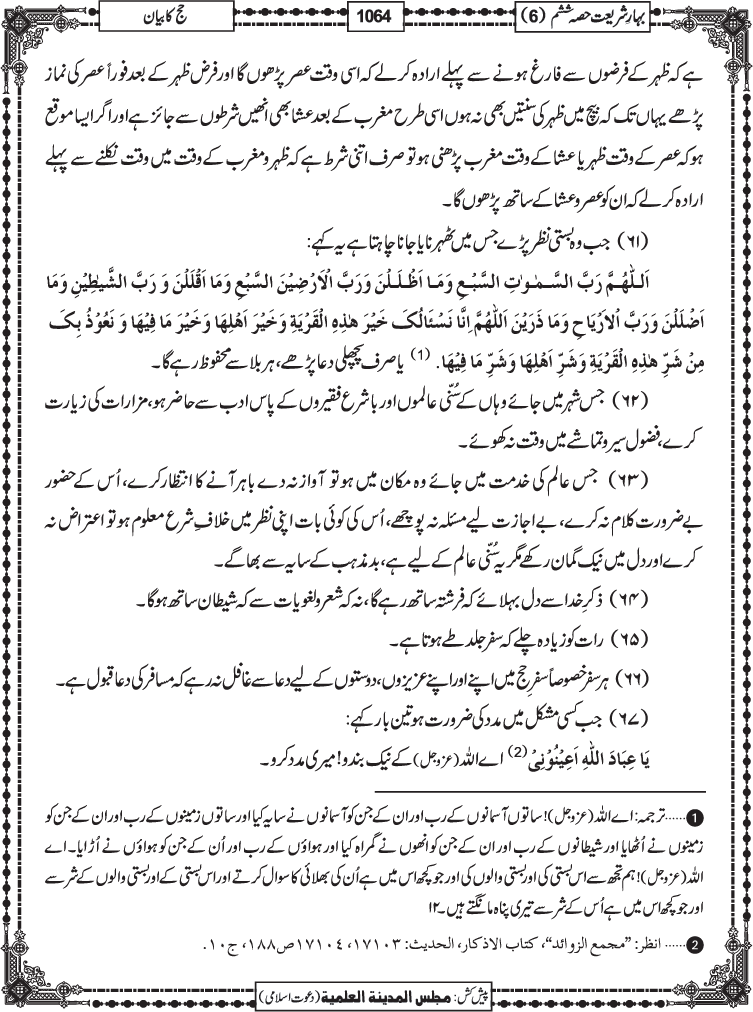 بہار شریعت حصہ ششم (6)
1064
حج کا بیان
ہے کہ ظہر کے فرضوں سے فارغ ہونے سے پہلے ارادہ کرلے کہ اسی وقت عصر پڑھوں گا اور فرض ظہر کے بعد فوراً عصر کی نماز
پڑھے یہاں تک کہ بیچ میں ظہر کی سنتیں بھی نہ ہوں اسی طرح مغرب کے بعد عشا بھی انھیں شرطوں سے جائز ہے اور اگر ایسا موقع
ہو کہ عصر کے وقت ظہر یا عشا کے وقت مغرب پڑھنی ہو تو صرف اتنی شرط ہے کہ ظہر و مغرب کے وقت میں وقت نکلنے سے پہلے
ارادہ کرلے کہ ان کو عصر و عشا کے ساتھ پڑھوں گا۔
(۶۱) جب وہ بستی نظر پڑے جس میں ٹھہرنا یا جانا چاہتا ہے یہ کہے:
اَللّٰھُمَّ رَبَّ السَّمٰوٰتِ السَّبْعِ وَمَا اَظْلَلْنَ وَرَبَّ الْاَرْضِیْنَ السَّبْعِ وَمَا اَقْلَلْنَ وَ رَبَّ الشَّیٰطِیْنِ وَمَا
اَضْلَلْنَ وَرَبَّ الْاَرْیَاحِ وَمَا ذَرَیْنَ اَللّٰھُمَّ اِنَّا نَسْئَالُکَ خَیْرَ ھٰذِہِ الْقَرْیَةِ وَخَیْرَ اَھْلِھَا وَخَیْرَ مَا فِیْھَا وَ نَعُوْذُ بِکَ
مِنْ شَرِّ ھٰذِہِ الْقَرْیَةِ وَشَرِّ اَھْلِھَا وَشَرِّ مَا فِیْھَا. (1) یا صرف پچھلی دعا پڑھے، ہر بلا سے محفوظ رہے گا۔
(۶۲) جس شہر میں جائے وہاں کے سُنّی عالموں اور با شرع فقیروں کے پاس ادب سے حاضر ہو، مزارات کی زیارت
کرے، فضول سیر و تماشے میں وقت نہ کھوئے۔
(۶۳) جس عالم کی خدمت میں جائے وہ مکان میں ہو تو آواز نہ دے باہر آنے کا انتظار کرے، اُس کے حضور
بے ضرورت کلام نہ کرے، بے اجازت لیے مسئلہ نہ پوچھے، اُس کی کوئی بات اپنی نظر میں خلافِ شرع معلوم ہو تو اعتراض نہ
کرے اور دل میں نیک گمان رکھے مگر یہ سُنّی عالم کے لیے ہے، بد مذہب کے سایہ سے بھاگے۔
(۶۴) ذکرِ خدا سے دل بہلائے کہ فرشتہ ساتھ رہے گا، نہ کہ شعر و لغویات سے کہ شیطان ساتھ ہوگا۔
(۶۵) رات کو زیادہ چلے کہ سفر جلد طے ہوتا ہے۔
(۶۶) ہر سفر خصوصاً سفرِ حج میں اپنے اور اپنے عزیزوں، دوستوں کے لیے دعا سے غافل نہ رہے کہ مسافر کی دعا قبول ہے۔
(۶۷) جب کسی مشکل میں مدد کی ضرورت ہو تین بار کہے:
یَا عِبَادَ اللّٰہِ اَعِیْنُوْنِیْ (2) اے اللہ (عزوجل) کے نیک بندو! میری مدد کرو۔
1......ترجمہ: اے اللہ (عزوجل)! ساتوں آسمانوں کے رب اور ان کے جن کو آسمانوں نے سایہ کیا اور ساتوں زمینوں کے رب اور ان کے جن کو
زمینوں نے اُٹھایا اور شیطانوں کے رب اور ان کے جن کو انھوں نے گمراہ کیا اور ہواؤں کے رب اور اُن کے جن کو ہواؤں نے اُڑایا۔ اے
اللہ (عزوجل)! ہم تجھ سے اس بستی کی اور بستی والوں کی اور جو کچھ اس میں ہے اُن کی بھلائی کا سوال کرتے اور اس بستی کے اور بستی والوں کے شر سے
اور جو کچھ اس میں ہے اُس کے شر سے تیری پناہ مانگتے ہیں۔۱۲
2...... انظر: "مجمع الزوائد"، کتاب الاذکار، الحدیث: ۱۷۱۰۳، ۱۷۱۰٤ ص۱۸۸، ج۱۰.
پیش کش: مجلس المدینة العلمیة (دعوت اسلامی)